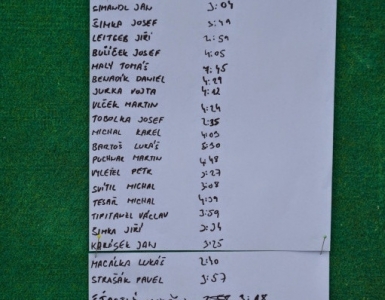 ŠIMANDL JAN 3:04
ŠIMKA JOSEF 3:49
LEITGEB JIŘÍ 2:59
BUŠÍČEK JOSEF 4:05
MALÝ TOMÁŠ 4:45
BENADÍK DANIEL 4:29
JURKA VOJTA 4:12
VLČEK MARTIN 4:24
TOBOLKA JOSEF 2:35
MICHAL KAREL 4:03
BARTOŠ LUKÁŠ 5:30
PUCHNAR MARTIN 4:48
VYLEŤEL PETR 3:27
SVÍTIL MICHAL 3:08
TESAŘ MICHAL 4:39
TIPITANEL VÁCLAV 3:59
ŠIMKA JIŘÍ 3:34
KARÁSEK JAN 3:25
MACÁLKA LUKÁŠ 2:40
STRAŠÁK PAVEL 3:57
3:18